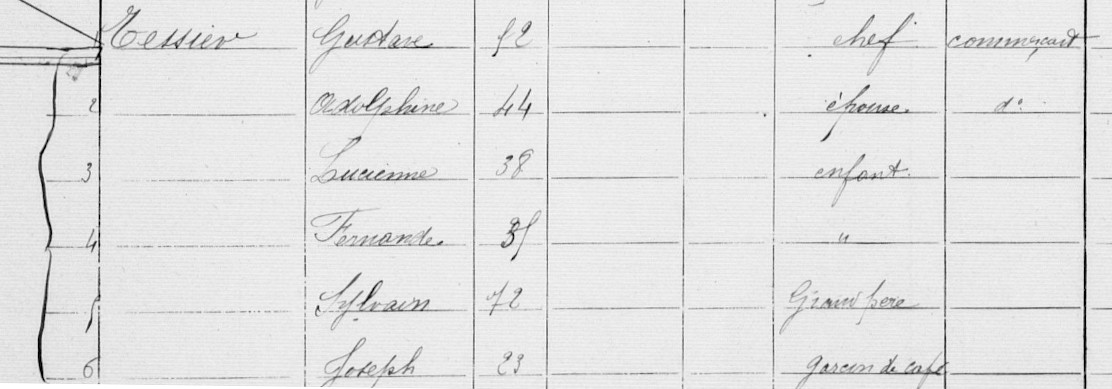 Tessier Gustave 52 chef commerçant
2 Adolphine 44 épouse d°
3 Lucienne 38 enfant
4 Fernande 35 "
5 Sylvain 72 Grand père
6 Joseph 23 garçon de café